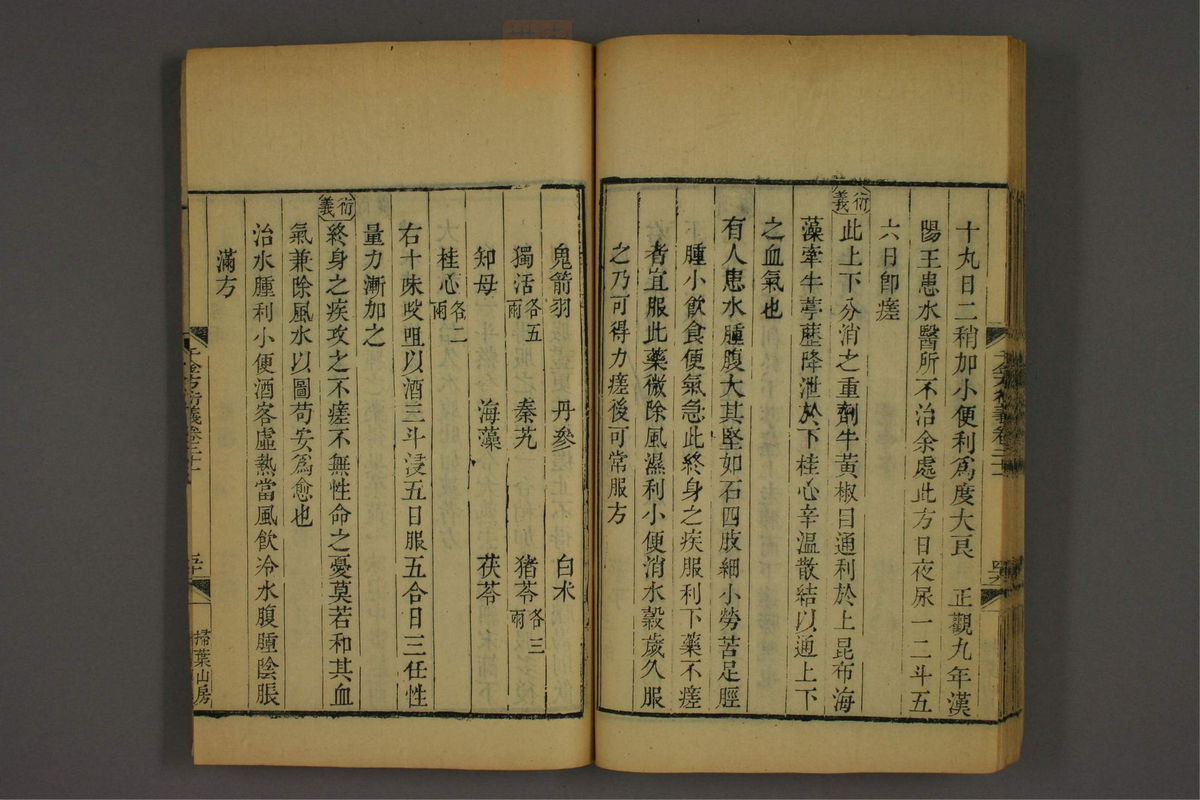 十丸日二稍加小便利爲度大良　正觀九年漢
陽王患水醫所不治余處此方日夜尿一二斗五
六日卽瘥
衍義
此上下分消之重劑牛黃椒目通利於上昆布海
藻牽牛葶藶降泄於下桂心辛溫散結以通上下
之血氣也
有人患水腫腹大其堅如石四肢細小勞苦足脛
腫小飲食便氣急此終身之疾服利下藥不瘥
者宜服此藥微除風濕利小便消水穀歲久服
之乃可得力瘥後可常服方
鬼箭羽　丹參　白术
獨活各五兩　秦艽　猪苓各三兩
知母　海藻　茯苓
桂心各二兩
右十味㕮咀以酒三斗浸五日服五合日三任性
量力漸加之
衍義
終身之疾攻之不瘥不無性命之憂莫若和其血
氣兼除風水以圖苟安爲愈也
治水腫利小便酒客虛熱當風飲冷水腹腫陰脹
滿方
千金方衍義卷二十一
五十
掃葉山房